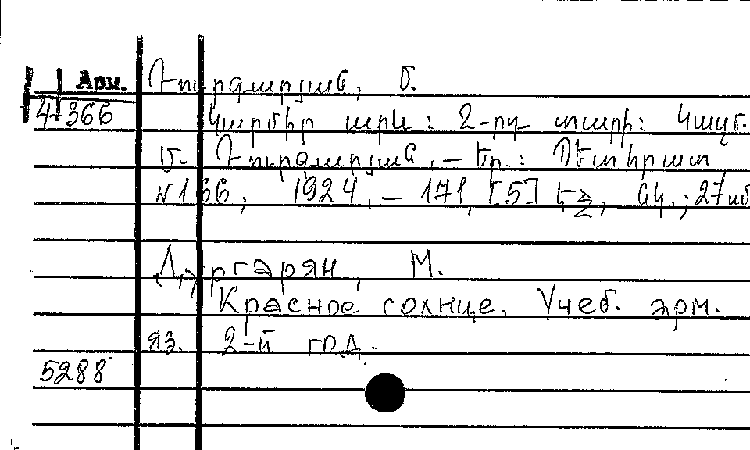 Арм.
4-366
Դուրգարյան, Մ.
Կարմիր արև: 2-րդ տարի: Կազմ.
Մ. Դուրգարյան, — Եր.: Պետհրատ
N166, 1924, — 171, [5] էջ, նկ.; 27 սմ
Дургарян, М.
Красное солнце. Учеб. арм.
яз. 2-й год.
5288